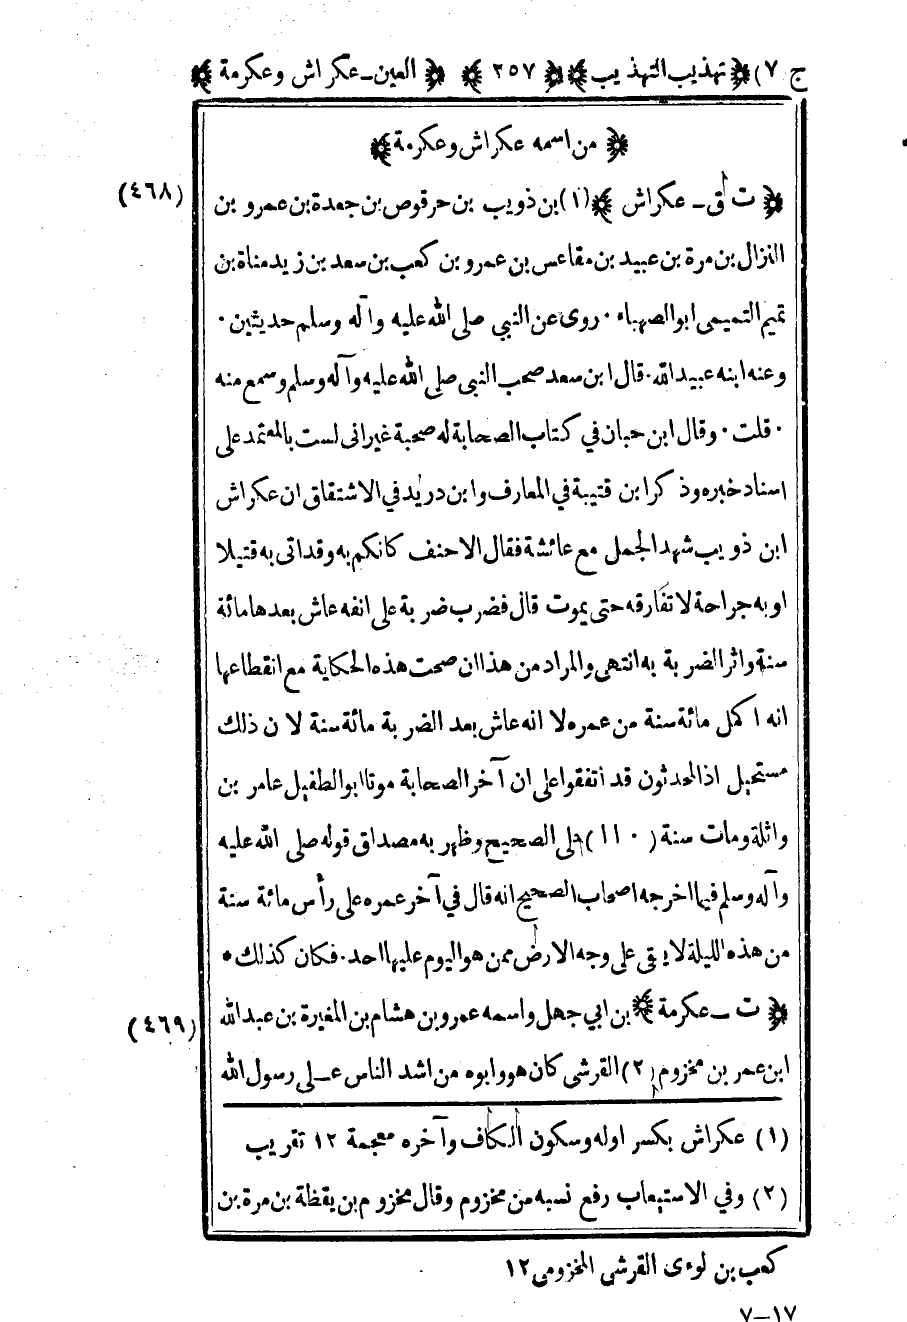 ج ٧) ﴿ تهذيب التهذيب ﴾ ﴿ ٢٥٧ ﴾ ﴿ العين ـ عكراش وعكرمة ﴾
﴿ من اسمه عكراش وعكرمة ﴾
(٤٦٨) ﴿ ت ق ـ عكراش ﴾ (١) بن ذويب بن حرقوص بن جعدة بن عمرو بن
النزال بن مرة بن عبيد بن مقاعس بن عمرو بن كعب بن سعد بن زيد مناة بن
تميم التميمى ابو الصهباء ٠ روى عن النبي صلى الله عليه وآله وسلم حديثين ٠
وعنه ابنه عبيد الله ٠ قال ابن سعد صحب النبى صلى الله عليه وآله وسلم وسمع منه
٠ قلت ٠ وقال ابن حبان في كتاب الصحابة له صحبة غير انى لست بالمعتمد على
اسناد خبره وذكر ابن قتيبة في المعارف وابن دريد في الاشتقاق ان عكراش
ابن ذويب شهد الجمل مع عائشة فقال الاحنف كانكم به وقد اتى به قتيلا
او به جراحة لا تفارقه حتى يموت قال فضرب ضربة على انفه عاش بعدها مائة
سنة واثر الضربة به انتهى والمراد من هذا ان صحت هذه الحكاية مع انقطاعها
انه اكمل مائة سنة من عمره لا انه عاش بعد الضربة مائة سنة لان ذلك
مستحيل اذ المحدثون قد اتفقوا على ان آخر الصحابة موتا ابو الطفيل عامر بن
واثلة ومات سنة (١١٠) على الصحيح وظهر به مصداق قوله صلى الله عليه
وآله وسلم فيما اخرجه اصحاب الصحيح انه قال في آخر عمره على رأس مائة سنة
من هذه الليلة لا يبقى على وجه الارض ممن هو اليوم عليها احد ٠ فكان كذلك ٠
(٤٦٩) ﴿ ت ـ عكرمة ﴾ بن ابي جهل واسمه عمرو بن هشام بن المغيرة بن عبد الله
ابن عمر بن مخزوم (٢) القرشى كان هو وابوه من اشد الناس عـلى رسول الله
(١) عكراش بكسر اوله وسكون الكاف وآخره معجمة ١٢ تقريب
(٢) وفي الاستيعاب رفع نسبه من مخزوم وقال مخزوم بن يقظة بن مرة بن
كعب بن لوءى القرشى المخزومى ١٢
٧ــ١٧